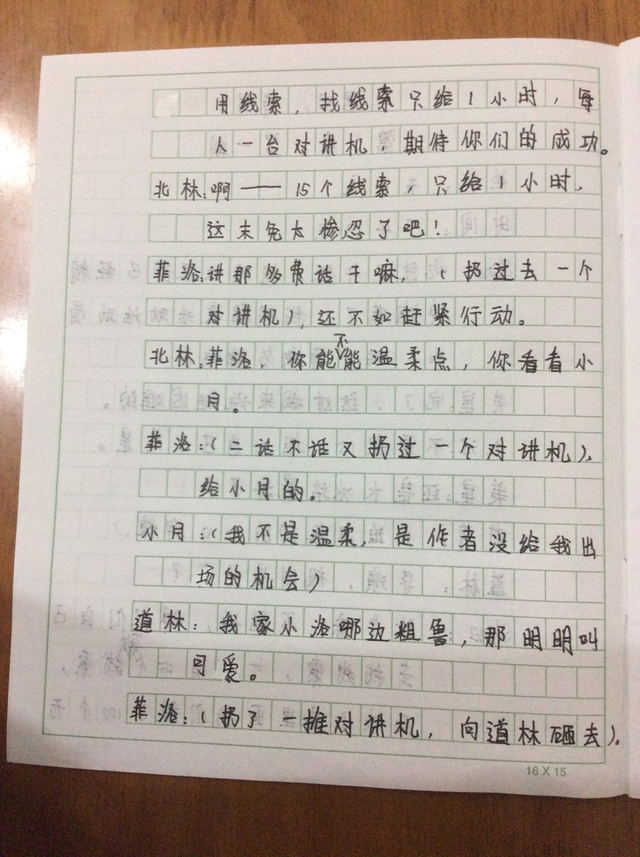 用线索，找线索只给1小时，每
人一台对讲机，期待你们的成功。
北林：啊——15个线索，只给1小时，
这未免太惨忍了吧！
菲洛：讲那多费话干嘛，（扔过去一个
对讲机），还不如赶紧行动。
北林：菲洛，你能不能温柔点，你看看小
月。
菲洛：（二话不话又扔过一个对讲机）。
给小月的。
小月：（我不是温柔，是作者没给我出
场的机会）
道林：我家小洛哪边粗鲁，那明明叫
可爱。
菲洛：（扔了一推对讲机，向道林砸去）。
16×15